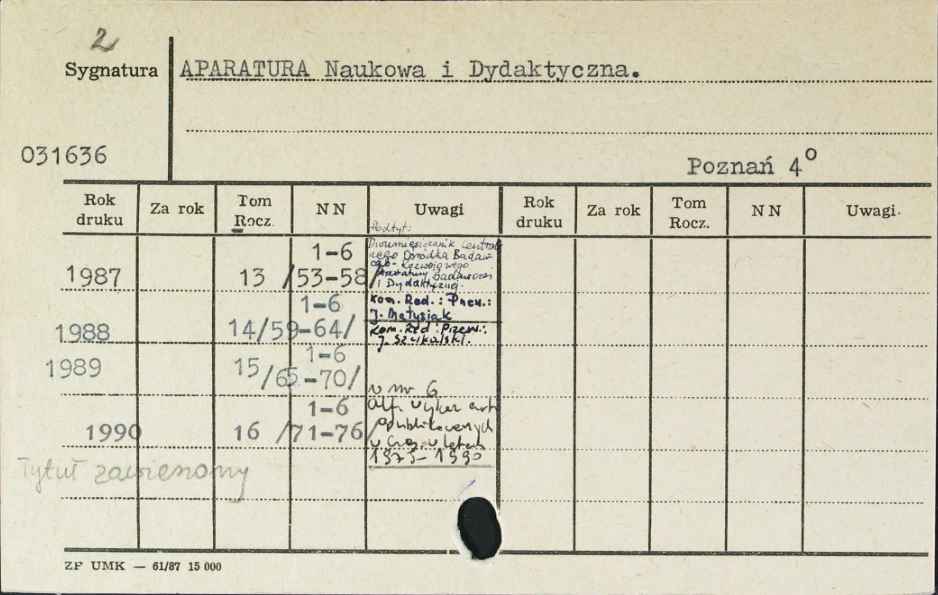 2
Sygnatura APARATURA Naukowa i Dydaktyczna.
031636
Poznań 4°
Rok druku Za rok Tom Rocz. NN Uwagi Rok druku Za rok Tom Rocz. NN Uwagi
Podtyt:
1-6 Dwumiesięcznik Central
nego Ośrodka Badaw
czo-Rozwojowego
1987 13 /53-58/ Aparatury Badawczej
i Dydaktycznej.
1-6 Kom. Red.: Przew.:
J. Matysiak
1988 14/59-64/ Kom. Red. Przew.:
J. Szukalski.
1-6
1989 15/65-70/
w nr 6
1-6 Alf. wykaz art.
1990 16 /71-76/ publikowanych
w Czas. w latach
1975-1990
Tytuł zawieszony
ZP UMK — 61/87 15 000